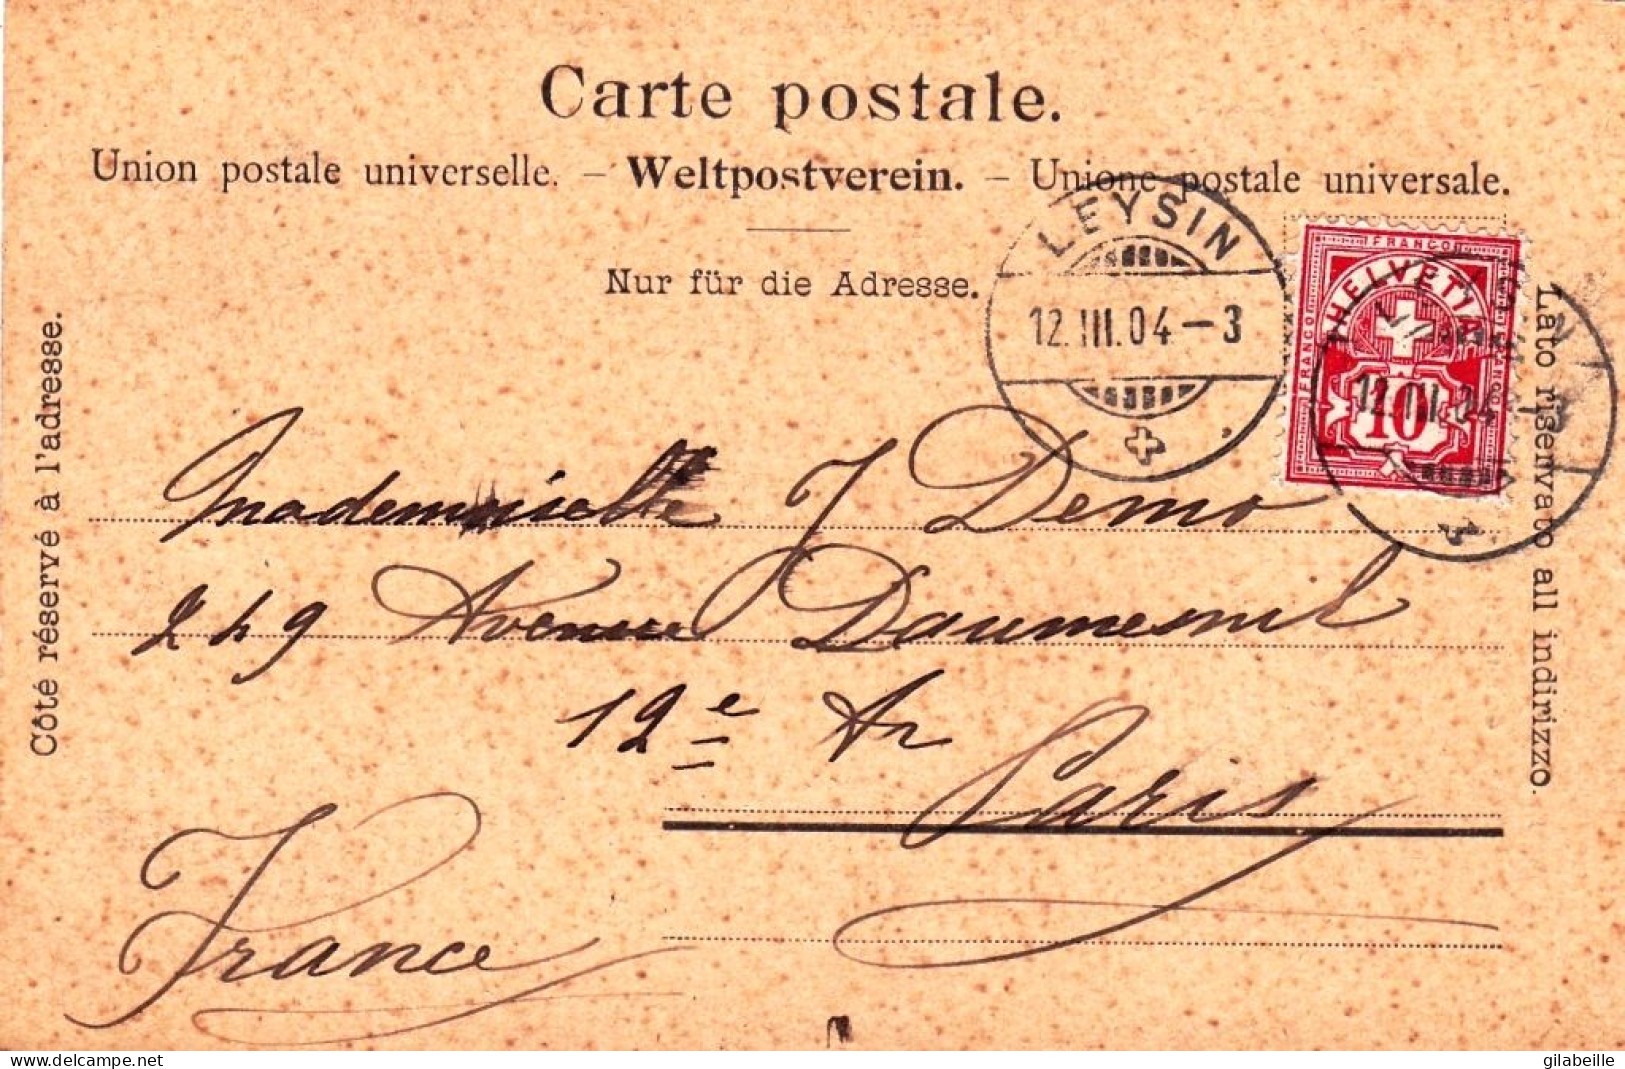 Carte postale.
Union postale universelle. – Weltpostverein. – Unione postale universale.
Nur für die Adresse.
Côté réservé à l'adresse.
Lato riservato all indirizzo.
LEYSIN
12.III.04–3
FRANCO
FRANCO
FRANCO
HELVETIA
10
12.III.04–3
Mademoiselle J Demo
249 Avenue Daumesnil
12e Ar
Paris
France
www.delcampe.net
gilabeille